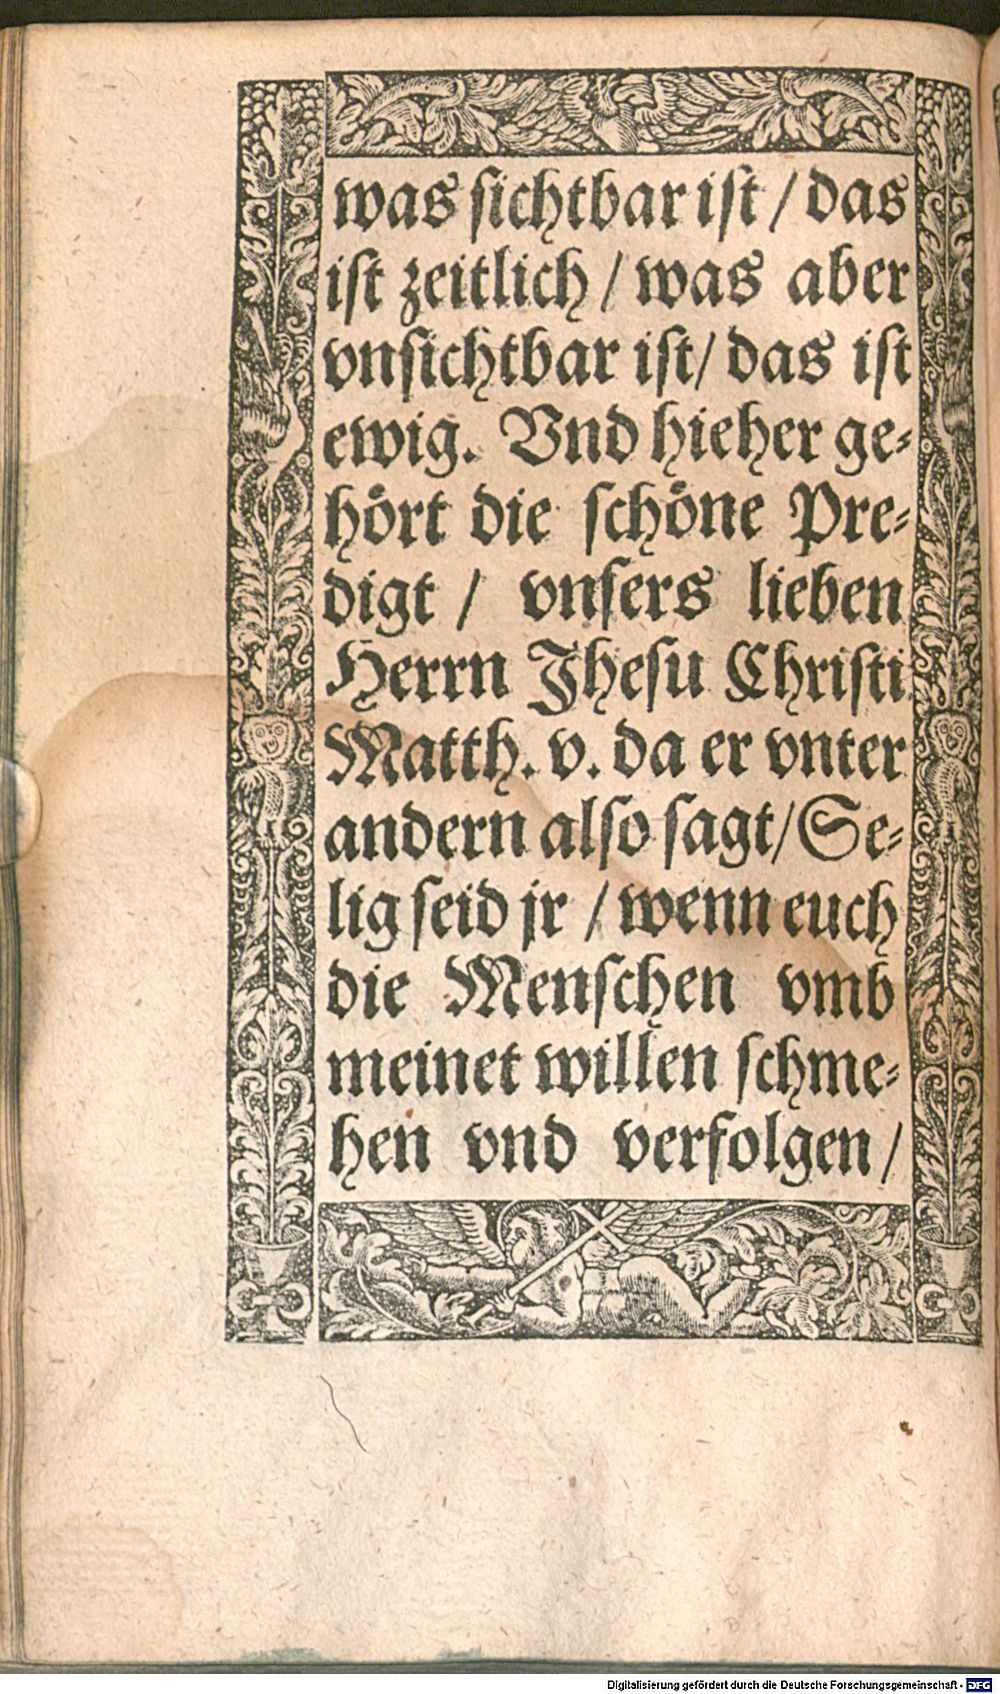 was sichtbar ist / das
ist zeitlich / was aber
vnsichtbar ist / das ist
ewig. Vnd hieher ge⸗
hört die schöne Pre⸗
digt / vnsers lieben
Herrn Jhesu Christi
Matth. v. da er vnter
andern also sagt / Se⸗
lig seid jr / wenn euch
die Menschen vmb
meinet willen schme⸗
hen vnd verfolgen /
Digitalisierung gefördert durch die Deutsche Forschungsgemeinschaft - DFG